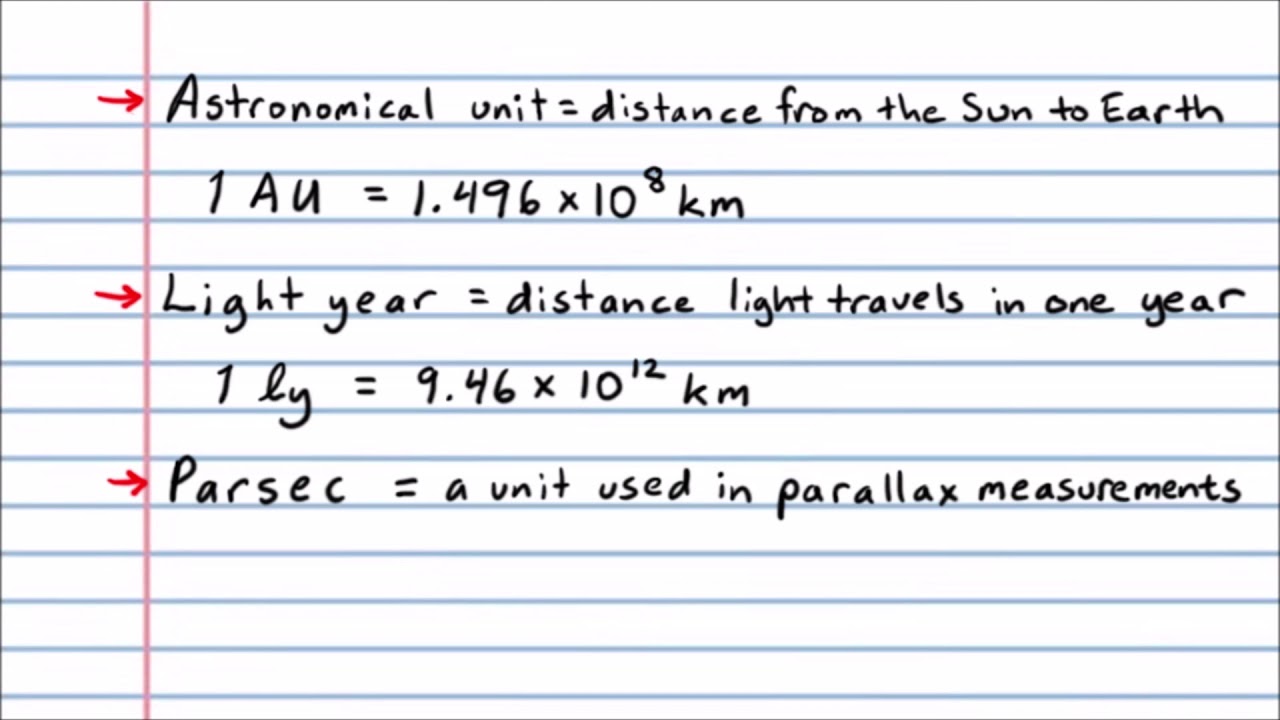 → Astronomical unit = distance from the Sun to Earth
1 AU = 1.496 × 10⁸ km
→ Light year = distance light travels in one year
1 ly = 9.46 × 10¹² km
→ Parsec = a unit used in parallax measurements